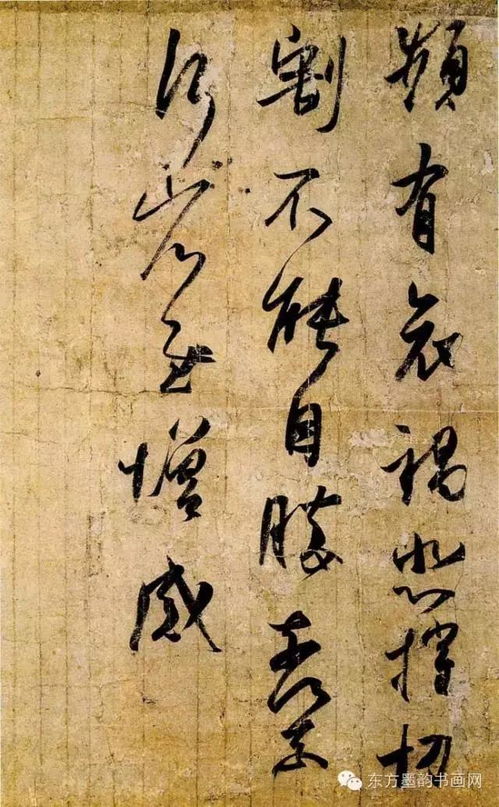 頻有哀禍悲摧切
割不能自勝奈何奈
何省慰增感
东方墨韵书画网